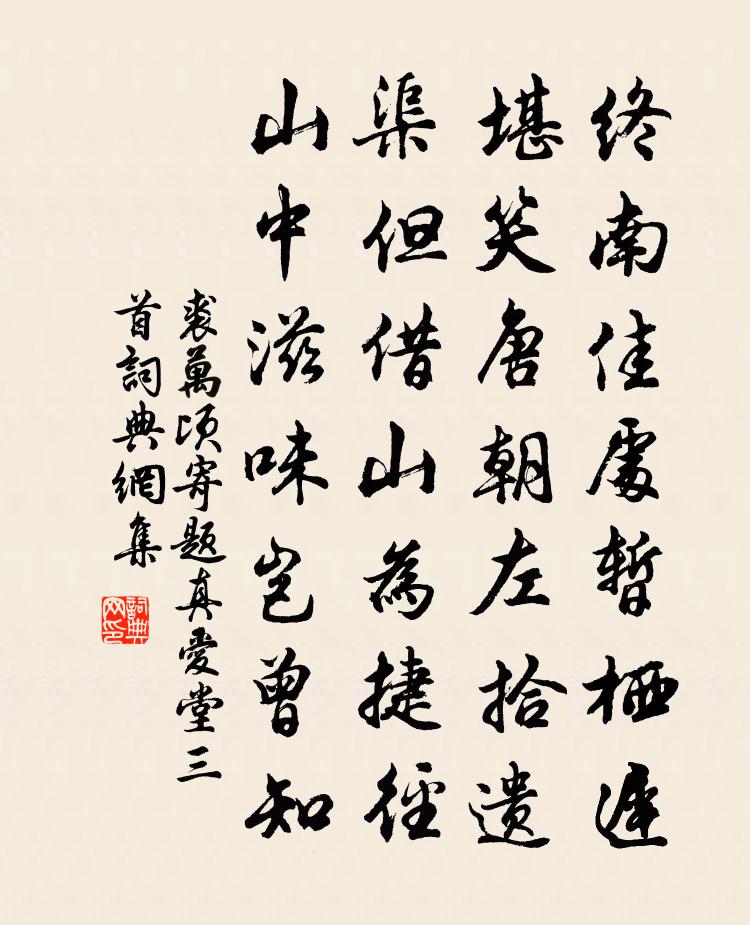 終南佳處暫栖遲
堪笑唐朝左拾遺
渠但借山為捷徑
山中滋味豈曾知
裘萬頃寄題真愛堂三
首詞典網集
詞典網印